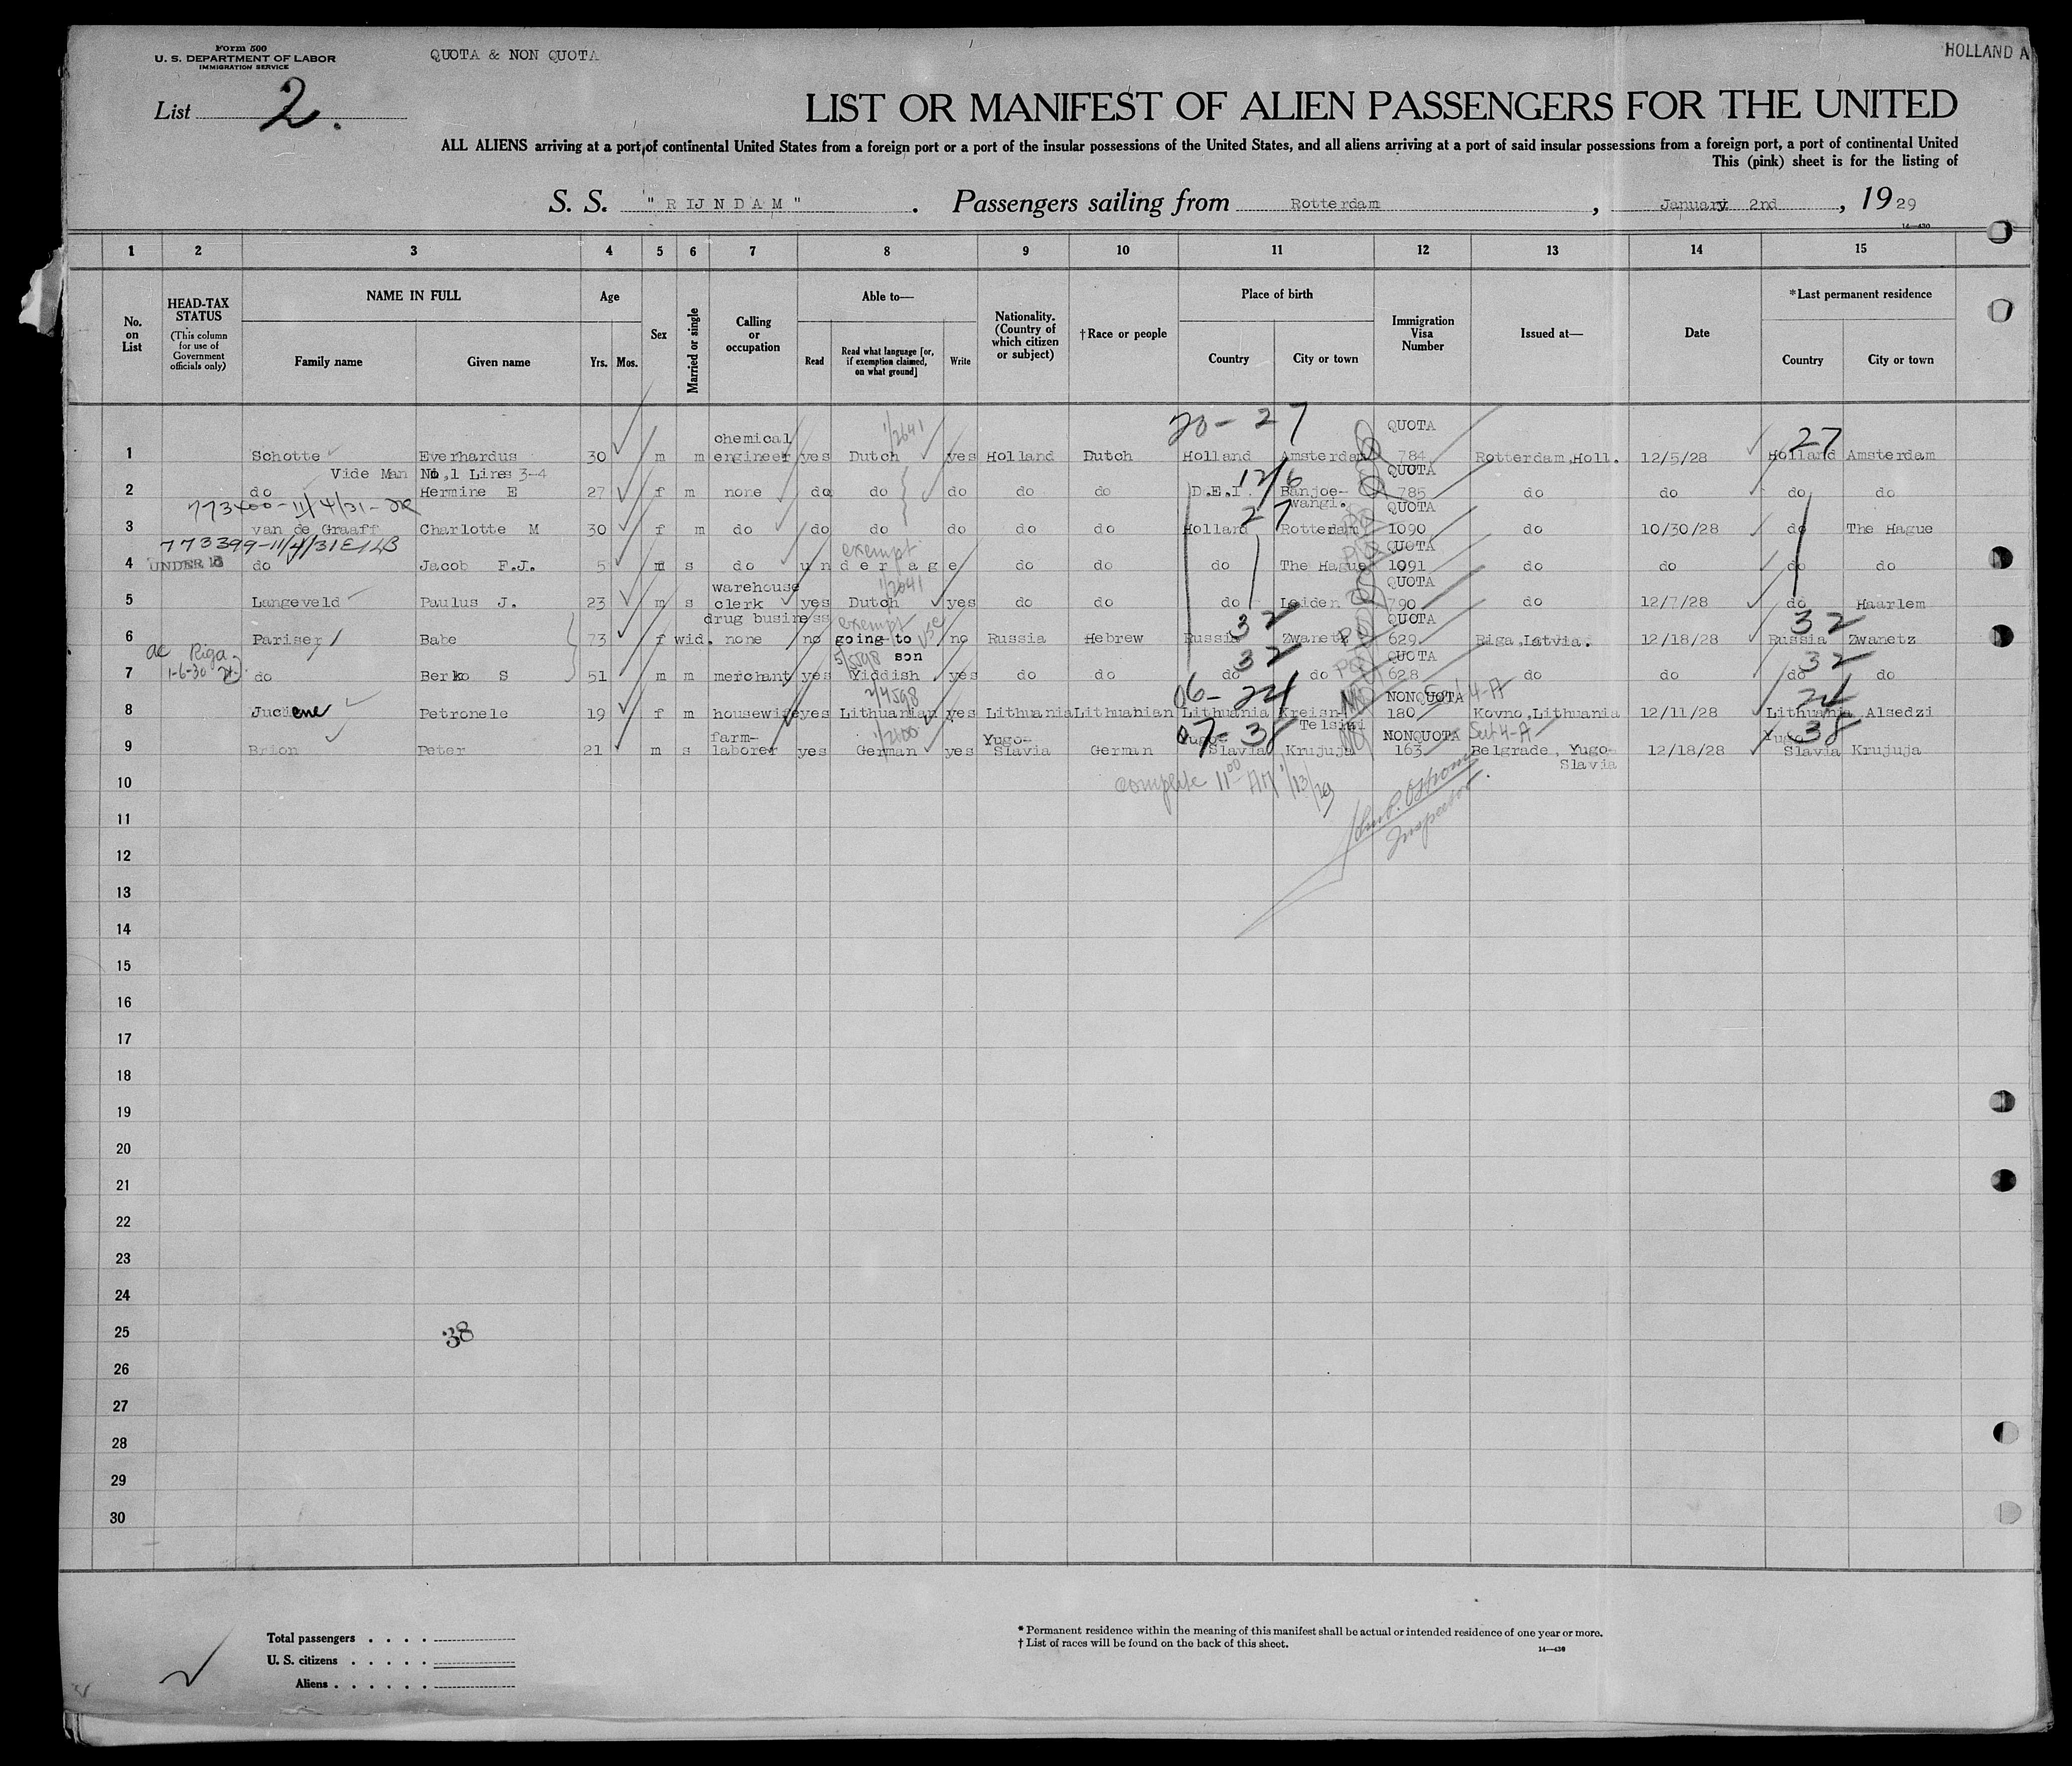 Form 500
U. S. DEPARTMENT OF LABOR
IMMIGRATION SERVICE
QUOTA & NON QUOTA
HOLLAND A
List 2.
LIST OR MANIFEST OF ALIEN PASSENGERS FOR THE UNITED
ALL ALIENS arriving at a port of continental United States from a foreign port or a port of the insular possessions of the United States, and all aliens arriving at a port of said insular possessions from a foreign port, a port of continental United
This (pink) sheet is for the listing of
S. S. "RIJNDAM". Passengers sailing from Rotterdam, January 2nd, 1929
14—430
1 2 3 4 5 6 7 8 9 10 11 12 13 14 15
No. on List
HEAD-TAX STATUS
(This column for use of Government officials only)
NAME IN FULL
Family name Given name
Age
Yrs. Mos.
Sex
Married or single
Calling or occupation
Able to—
Read Read what language [or, if exemption claimed, on what ground] Write
Nationality. (Country of which citizen or subject)
†Race or people
Place of birth
Country City or town
Immigration Visa Number
Issued at—
Date
*Last permanent residence
Country City or town
20-27 QUOTA
chemical 1/2641 27
1 Schotte Everhardus 30 m m engineer yes Dutch yes Holland Dutch Holland Amsterdam 784 Rotterdam,Holl. 12/5/28 Holland Amsterdam
Vide Man No,1 Lines 3-4 12/6 QUOTA
2 do Hermine E 27 f m none do do do do do D.E.I. Banjoe-wangi. 785 do do do do
773400-11/4/31- 27 QUOTA
3 van de Graaff Charlotte M 30 f m do do do do do do Holland Rotterdam 1090 do 10/30/28 do The Hague
773399-11/4/31 exempt QUOTA
4 UNDER 16 do Jacob F.J. 5 m s do under age do do do The Hague 1091 do do do do
warehouse 1/2641 QUOTA
5 Langeveld Paulus J. 23 m s clerk yes Dutch yes do do do Leiden 790 do 12/7/28 do Haarlem
drug business exempt 32 QUOTA 32
6 Pariser Babe 73 f wid. none no going to no Russia Hebrew Russia Zwanetz 629 Riga,Latvia. 12/18/28 Russia Zwanetz
Riga 5/5598 son 32 QUOTA 32
1-6-30
7 do Berko S 51 m m merchant yes Yiddish yes do do do do 628 do do do do
2/4598 06-24 NONQUOTA 4-A 24
8 Juciene Petronele 19 f m housewife yes Lithuanian yes Lithuania Lithuanian Lithuania Kreisn- Telsiai 180 Kovno,Lithuania 12/11/28 Lithuania Alsedzi
farm- Yugo- 07-38 NONQUOTA Sect 4-A Yugo- 38
9 Brion Peter 21 m s laborer yes German yes Slavia German Slavia Krujuja 163 Belgrade, Yugo- 12/18/28 Slavia Krujuja
Slavia
complete 11 00 AM 1/13/29
Inspector.
10
11
12
13
14
15
16
17
18
19
20
21
22
23
24
25
38
26
27
28
29
30
Total passengers . . . .
U. S. citizens . . . . .
Aliens . . . . . .
* Permanent residence within the meaning of this manifest shall be actual or intended residence of one year or more.
† List of races will be found on the back of this sheet.
14—430